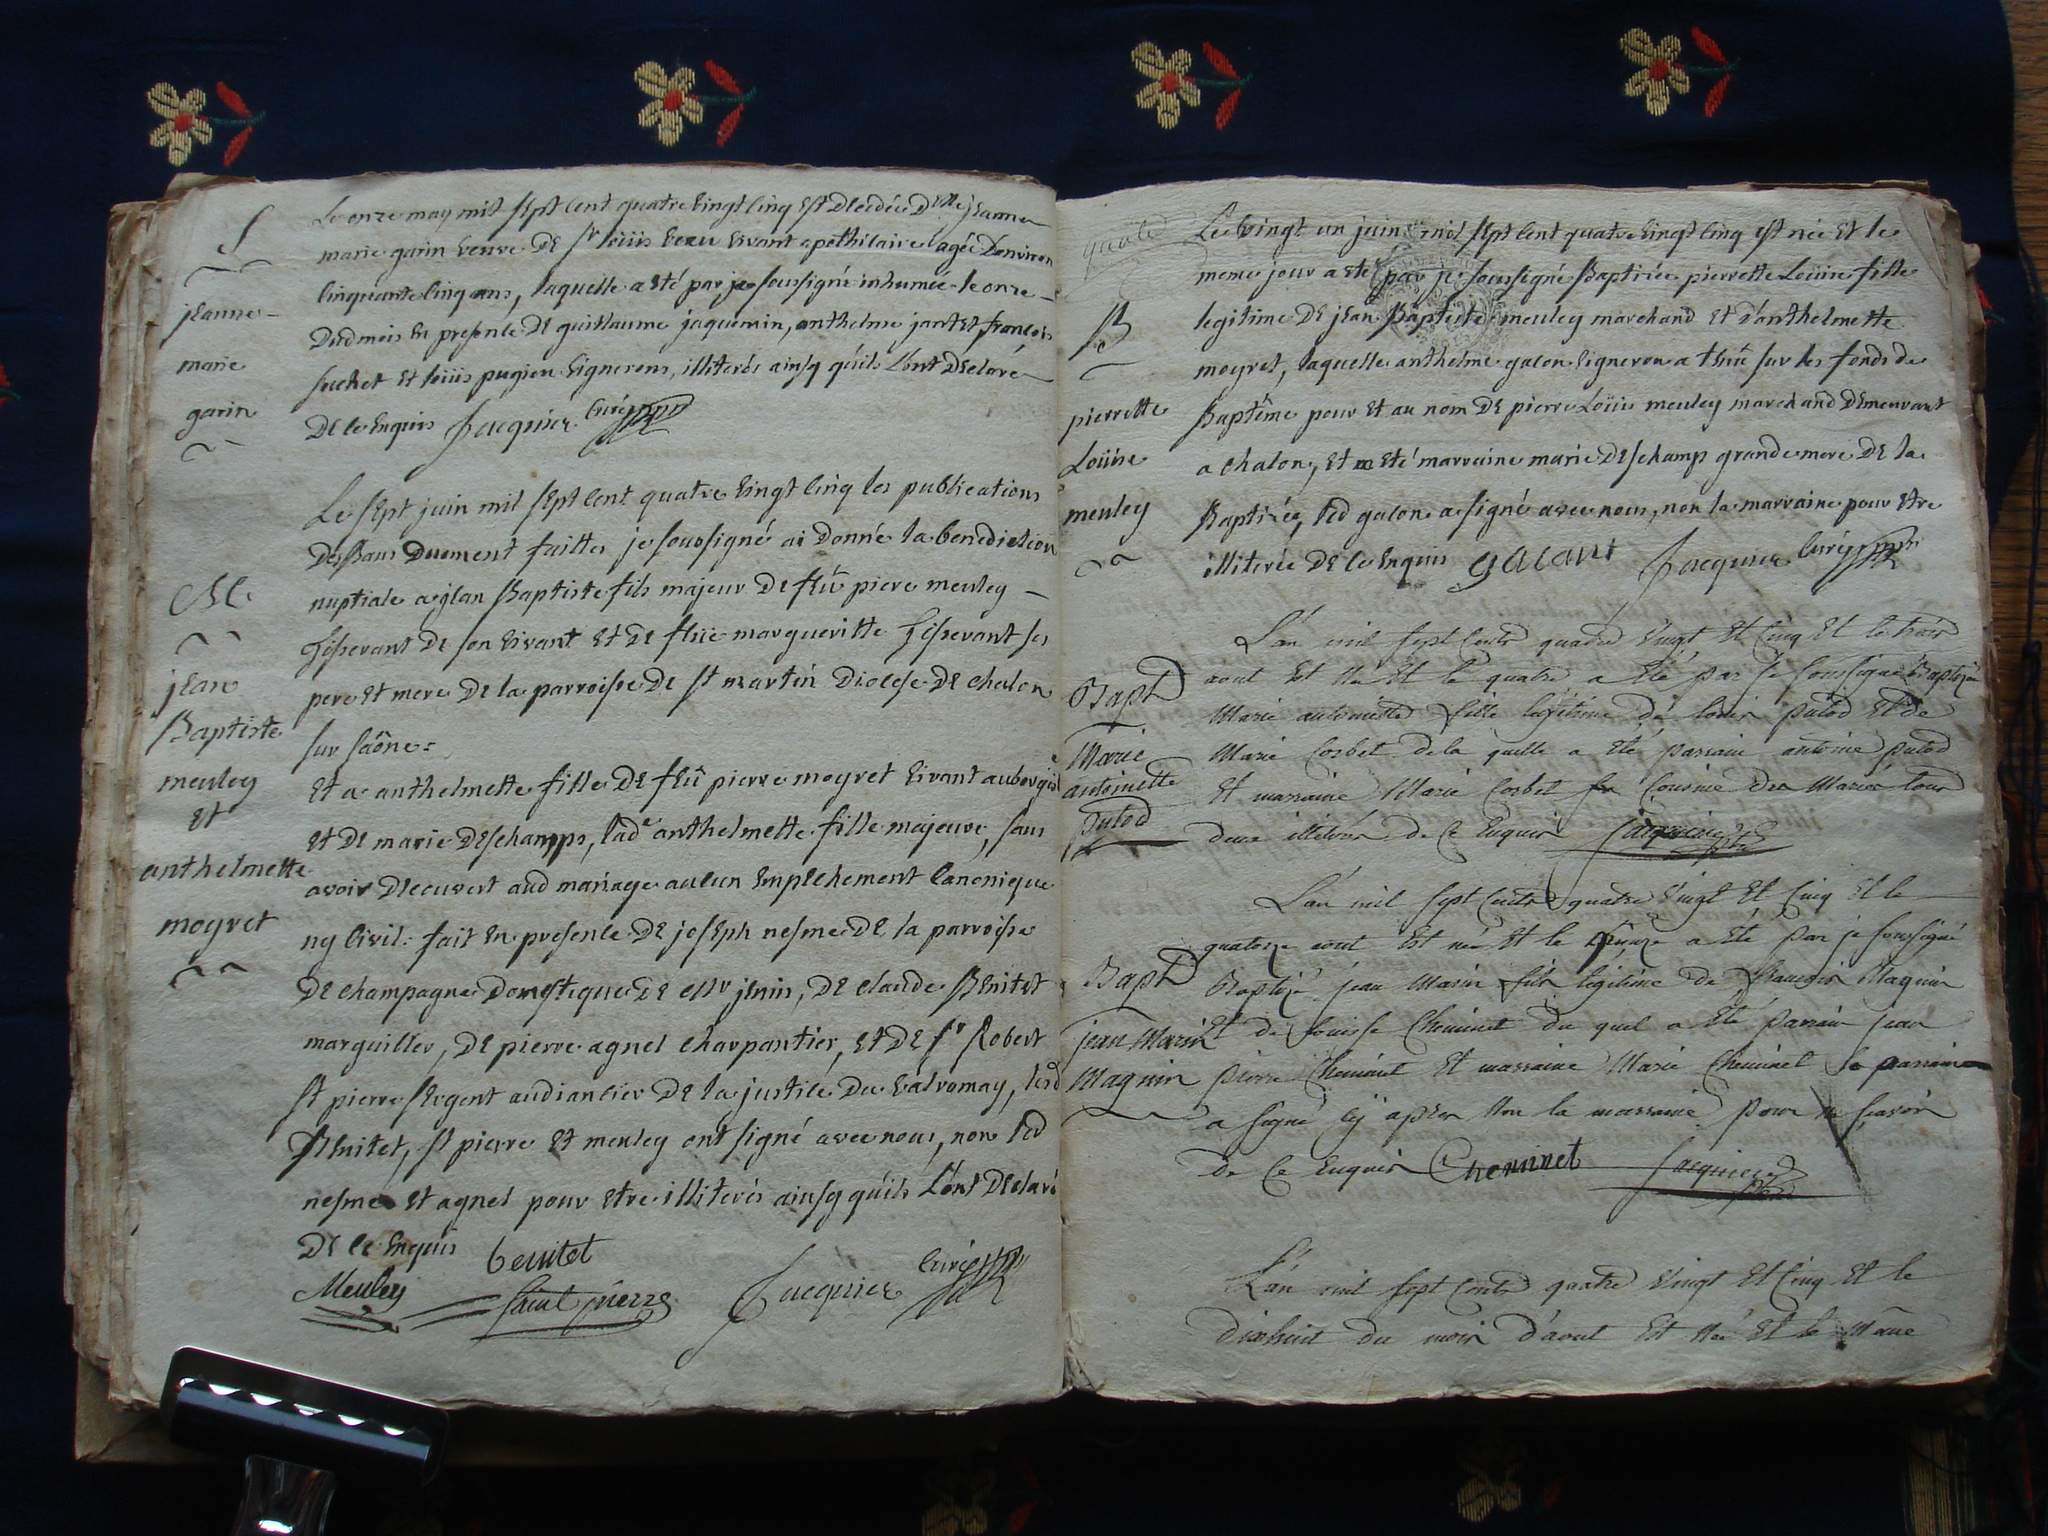 S
jeanne
marie
garin
Le onze may mil sept cent quatre vingt cinq est decedée Dlle jeanne
marie garin veuve de Sr loüis beau vivant apothicaire agée d'environ
cinquante cinq ans, laquelle a eté par je soussigné inhumée le onze
dud mois en presence de guillaume jaquemin, anthelme jantet françois
suchet et loüis pugieu vignerons, illiterés ainsy qu'ils l'ont declaré
de ce enquis Jacquier curé
M
jean
Baptiste
meuley
et
anthelmette
moyret
Le sept juin mil sept cent quatre vingt cinq les publications
des bans duement faittes je soussigné ai donné la benediction
nuptiale a jean Baptiste fils majeur de feû piere meuley
de son vivant et de feüe margueritte ses
pere et mere de la parroisse de st martin diocese de chalon
sur saône
et a anthelmette fille de feû pierre moyret vivant aubergiste
et de marie deschamps, lade anthelmette fille majeure, sans
avoir decouvert aud mariage aucun empechement canonique
ny civil. fait en presence de joseph nesme de la parroisse
de champagne domestique de jenin, de claude Benitet
marguiller, de pierre agnel charpantier, et de sr Robert
st pierre sergent audiancier de la justice du valromay, lesd
Benitet, st pierre et meuley ont signé avec nous, non led
nesme et agnel pour etre illiterés ainsy qu'ils l'ont declaré
de ce enquis benitet
Meuley Saint pierre Jacquier curé
B
pierrette
Loüise
meuley
Le vingt un juin mil sept cent quatre vingt cinq est née et le
meme jour a eté par je soussigné Baptisée pierrette Loüise fille
legitime de jean Baptiste meuley marchand et d'anthelmette
moyret, laquelle anthelme galon vigneron a tenu sur les fonds de
Baptême pour et au nom de pierre Loüis meuley marchand demeurant
a chalon, et a eté marraine marie deschamp grande mere de la
Baptisée, led galon a signé avec nous, non la marraine pour etre
illiterée de ce enquis galant Jacquier curé
Bapt
Marie
antoinette
putod
L'an mil sept cents quatre vingt et cinq et le trois
aout est née et le quatre a eté par je soussigné Baptizée
Marie antoinette fille legitime de loüis putod et de
Marie Corbet de la quelle a eté parrain antoine putod
et marraine Marie Corbet sa Cousine des Mariés tous
deux illiterés de ce enquis Jacquier
Bapt
jean Marin
Maguin
L'an mil sept cents quatre vingt et cinq et le
quatorze aout est né et le quinze a eté par je soussigné
Baptizé jean Marin fils legitime de françois Maguin
et de louisse Cheminet du quel a eté parrain jean
pierre Cheminet et marraine Marie Cheminet le parrain
a signé cÿ apres non la marraine pour ne sçavoir
de ce enquis Cheminet Jacquier
L'an mil sept cents quatre vingt et cinq et le
dixhuit du mois d'aout est né et le même